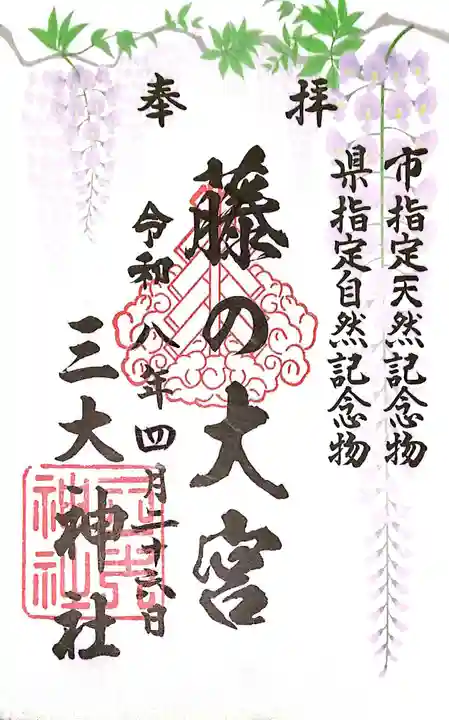 奉拝
市指定天然記念物
県指定自然記念物
藤の大宮
令和八年四月二十六日
三大神社